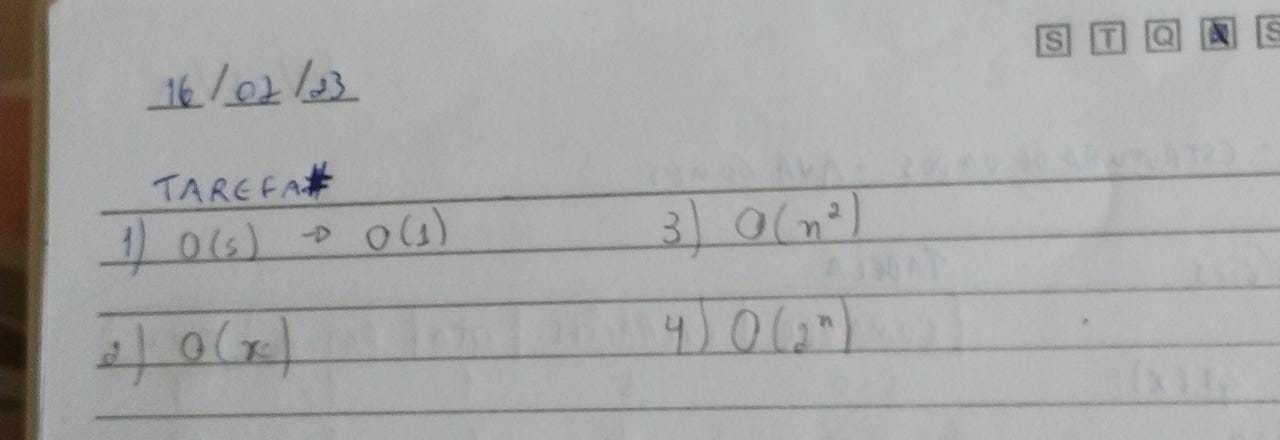 S T Q Q S
16/02/23
TAREFA#
1) O(5) → O(1) 3) O(n²)
2) O(x) 4) O(2ⁿ)